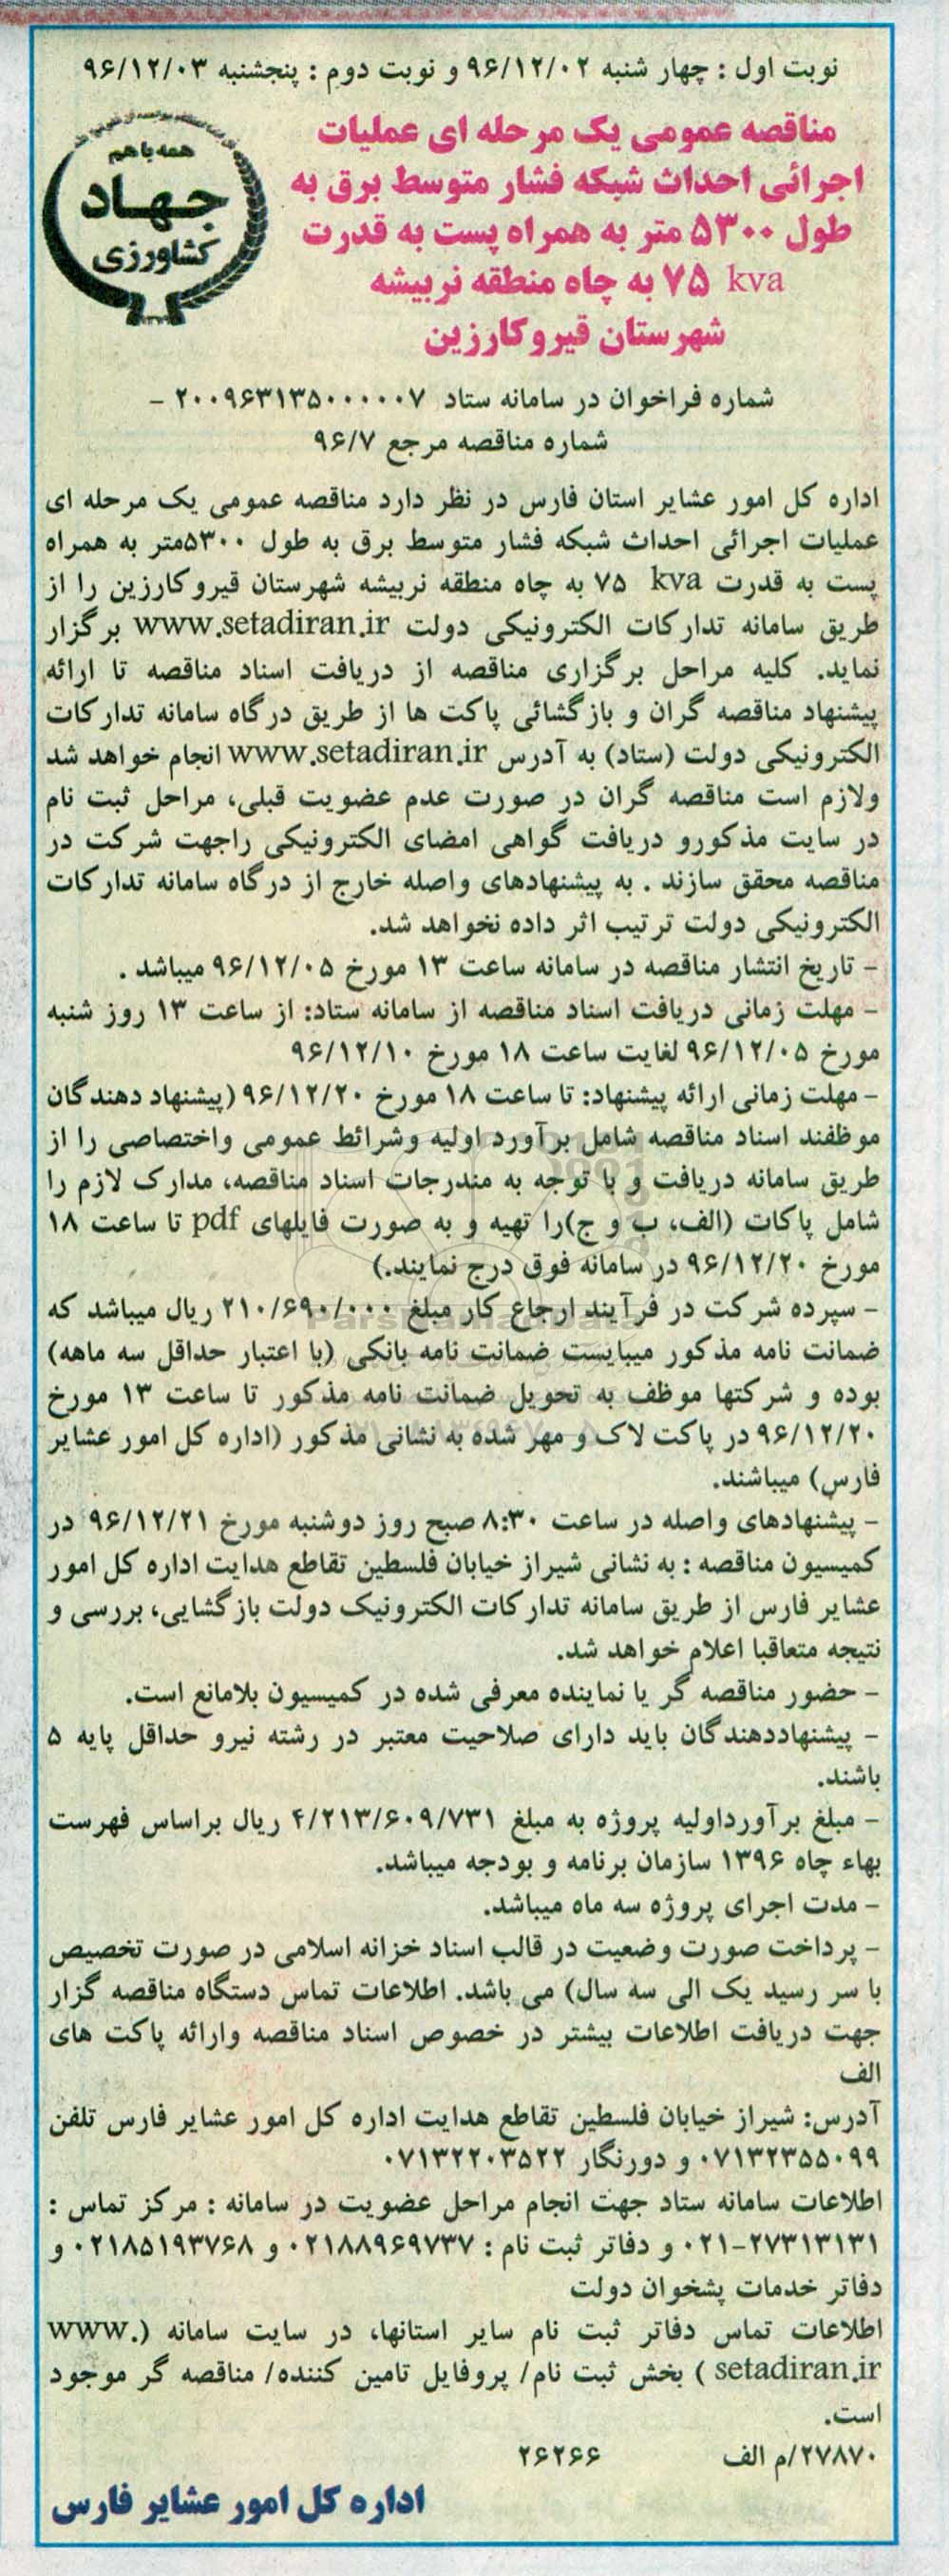 نوبت اول : چهار شنبه ۹۶/۱۲/۰۲ و نوبت دوم : پنجشنبه ۹۶/۱۲/۰۳
همه با هم
جهاد
کشاورزی
مناقصه عمومی یک مرحله ای عملیات
اجرائی احداث شبکه فشار متوسط برق به
طول ۵۳۰۰ متر به همراه پست به قدرت
۷۵ kva به چاه منطقه نربیشه
شهرستان قیروکارزین
شماره فراخوان در سامانه ستاد ۲۰۰۹۶۳۱۳۵۰۰۰۰۰۷ -
شماره مناقصه مرجع ۹۶/۷
اداره کل امور عشایر استان فارس در نظر دارد مناقصه عمومی یک مرحله ای
عملیات اجرائی احداث شبکه فشار متوسط برق به طول ۵۳۰۰متر به همراه
پست به قدرت ۷۵ kva به چاه منطقه نربیشه شهرستان قیروکارزین را از
طریق سامانه تدارکات الکترونیکی دولت www.setadiran.ir برگزار
نماید. کلیه مراحل برگزاری مناقصه از دریافت اسناد مناقصه تا ارائه
پیشنهاد مناقصه گران و بازگشائی پاکت ها از طریق درگاه سامانه تدارکات
الکترونیکی دولت (ستاد) به آدرس www.setadiran.ir انجام خواهد شد
ولازم است مناقصه گران در صورت عدم عضویت قبلی، مراحل ثبت نام
در سایت مذکورو دریافت گواهی امضای الکترونیکی راجهت شرکت در
مناقصه محقق سازند . به پیشنهادهای واصله خارج از درگاه سامانه تدارکات
الکترونیکی دولت ترتیب اثر داده نخواهد شد.
- تاریخ انتشار مناقصه در سامانه ساعت ۱۳ مورخ ۹۶/۱۲/۰۵ میباشد .
- مهلت زمانی دریافت اسناد مناقصه از سامانه ستاد: از ساعت ۱۳ روز شنبه
مورخ ۹۶/۱۲/۰۵ لغایت ساعت ۱۸ مورخ ۹۶/۱۲/۱۰
- مهلت زمانی ارائه پیشنهاد: تا ساعت ۱۸ مورخ ۹۶/۱۲/۲۰ (پیشنهاد دهندگان
موظفند اسناد مناقصه شامل برآورد اولیه وشرائط عمومی واختصاصی را از
طریق سامانه دریافت و با توجه به مندرجات اسناد مناقصه، مدارک لازم را
شامل پاکات (الف، ب و ج)را تهیه و به صورت فایلهای pdf تا ساعت ۱۸
مورخ ۹۶/۱۲/۲۰ در سامانه فوق درج نمایند.)
- سپرده شرکت در فرآیند ارجاع کار مبلغ ۲۱۰/۶۹۰/۰۰۰ ریال میباشد که
ضمانت نامه مذکور میبایست ضمانت نامه بانکی (با اعتبار حداقل سه ماهه)
بوده و شرکتها موظف به تحویل ضمانت نامه مذکور تا ساعت ۱۳ مورخ
۹۶/۱۲/۲۰ در پاکت لاک و مهر شده به نشانی مذکور (اداره کل امور عشایر
فارس) میباشند.
- پیشنهادهای واصله در ساعت ۸:۳۰ صبح روز دوشنبه مورخ ۹۶/۱۲/۲۱ در
کمیسیون مناقصه : به نشانی شیراز خیابان فلسطین تقاطع هدایت اداره کل امور
عشایر فارس از طریق سامانه تدارکات الکترونیک دولت بازگشایی، بررسی و
نتیجه متعاقبا اعلام خواهد شد.
- حضور مناقصه گر یا نماینده معرفی شده در کمیسیون بلامانع است.
- پیشنهاددهندگان باید دارای صلاحیت معتبر در رشته نیرو حداقل پایه ۵
باشند.
- مبلغ برآورداولیه پروژه به مبلغ ۴/۲۱۳/۶۰۹/۷۳۱ ریال براساس فهرست
بهاء چاه ۱۳۹۶ سازمان برنامه و بودجه میباشد.
- مدت اجرای پروژه سه ماه میباشد.
- پرداخت صورت وضعیت در قالب اسناد خزانه اسلامی در صورت تخصیص
با سر رسید یک الی سه سال) می باشد. اطلاعات تماس دستگاه مناقصه گزار
جهت دریافت اطلاعات بیشتر در خصوص اسناد مناقصه وارائه پاکت های
الف
آدرس: شیراز خیابان فلسطین تقاطع هدایت اداره کل امور عشایر فارس تلفن
۰۷۱۳۲۳۵۵۰۹۹ و دورنگار ۰۷۱۳۲۲۰۳۵۲۲
اطلاعات سامانه ستاد جهت انجام مراحل عضویت در سامانه : مرکز تماس :
۰۲۱-۲۷۳۱۳۱۳۱ و دفاتر ثبت نام : ۰۲۱۸۸۹۶۹۷۳۷ و ۰۲۱۸۵۱۹۳۷۶۸ و
دفاتر خدمات پشخوان دولت
اطلاعات تماس دفاتر ثبت نام سایر استانها، در سایت سامانه (www.
setadiran.ir ) بخش ثبت نام/ پروفایل تامین کننده/ مناقصه گر موجود
است.
۲۷۸۷۰/م الف ۲۶۲۶۶
اداره کل امور عشایر فارس